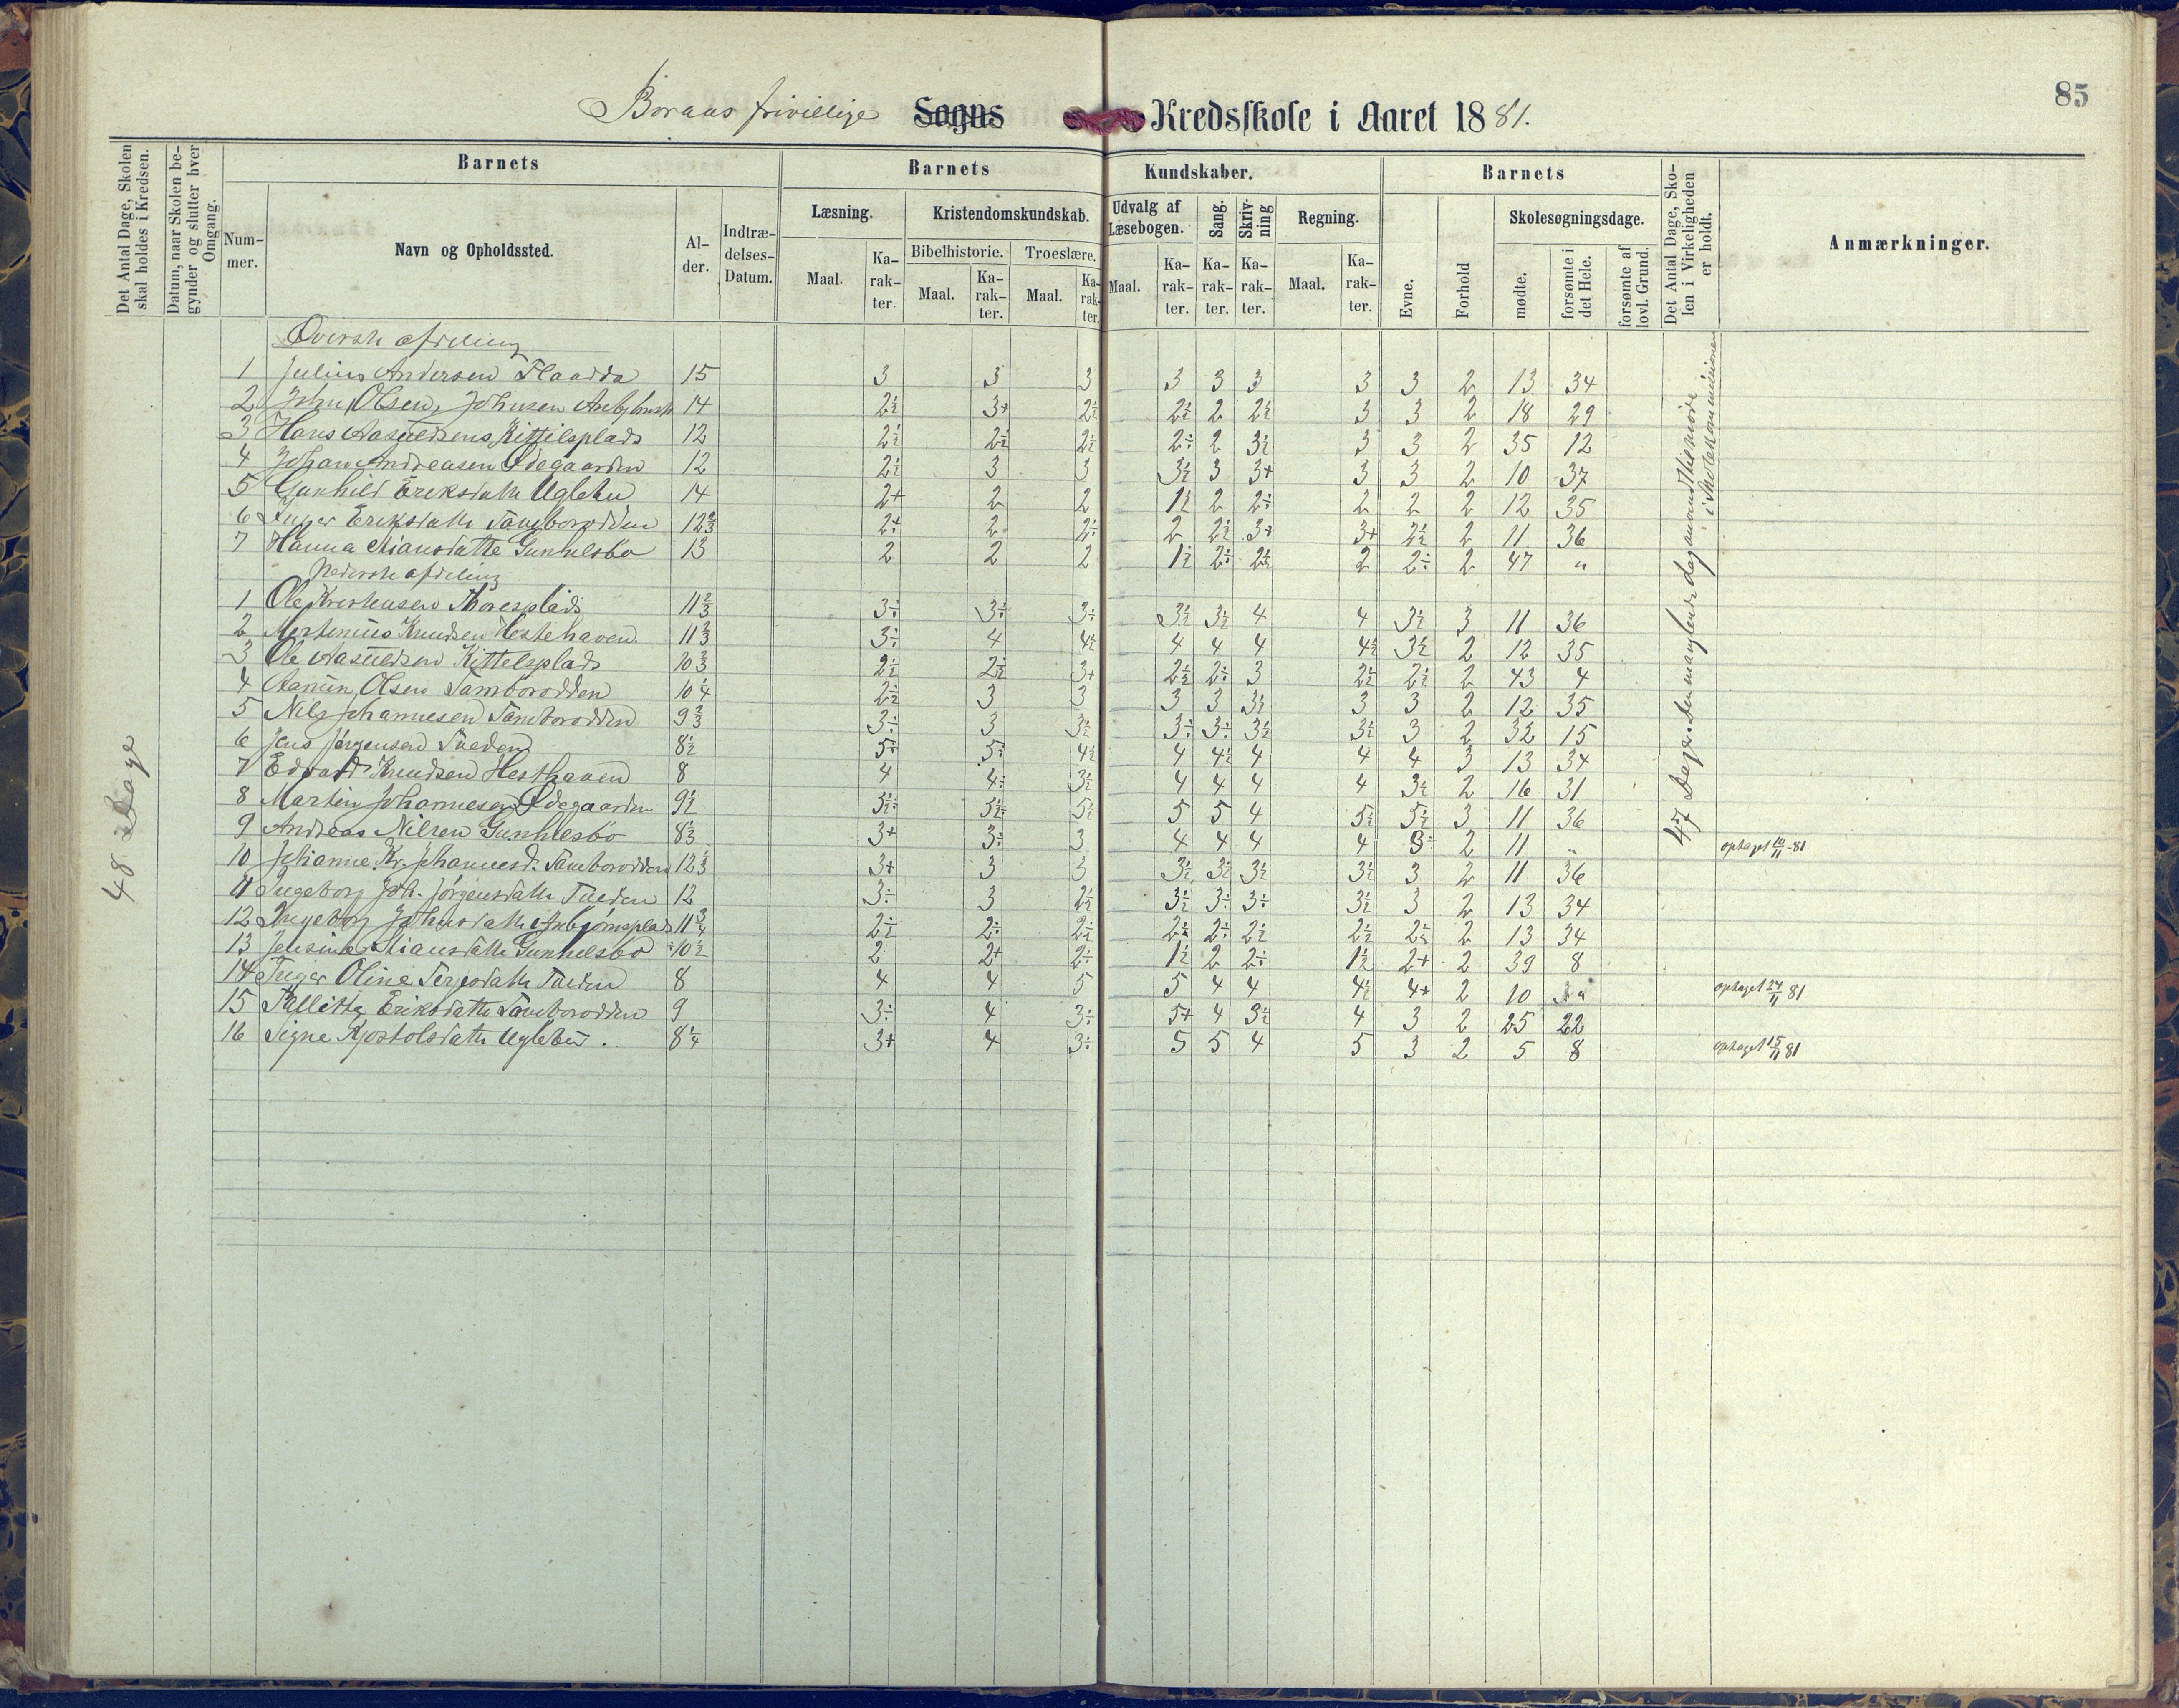 85
Boraas frivillige Sogns Kredsskole i Aaret 1881.
Det Antal Dage, Skolen skal holdes i Kredsen.
Datum, naar Skolen begynder og slutter hver Omgang.
Barnets
Barnets Kundskaber.
Barnets
Det Antal Dage, Skolen i Virkeligheden er holdt.
Anmærkninger.
Nummer.
Navn og Opholdssted.
Alder.
Indtrædelses-Datum.
Læsning.
Kristendomskundskab.
Udvalg af Læsebogen.
Sang.
Skrivning
Regning.
Evne.
Forhold
Skolesøgningsdage.
Bibelhistorie.
Troeslære.
Maal. Karakter. Maal. Karakter. Maal. Karakter. Maal. Karakter. Karakter. Karakter. Maal. Karakter.
mødte.
forsømte i det Hele.
forsømte af lovl. Grund.
48 Dage
47 Dage
Øverste afdeling
1 Julius Andersen Flaadda 15 3 3 3 3 3 3 3 3 2 13 34
2 John Olsen, Johnsen 14 2½ 3+ 2½ 2½ 2 2½ 3 3 2 18 29
3 Hans Aasuldsens Kittilsplads 12 2½ 2½ 2½ 2÷ 2 3½ 3 3 2 35 12
4 Johan Andreasen Ødegaarden 12 2½ 3 3 3½ 3 3+ 3 3 2 10 37
5 Gunhild Eriksdatte Uglebu 14 2+ 2 2 1½ 2 2÷ 2 2 2 12 35
6 Inger Eriksdatte Tamborodden 12⅔ 2÷ 2 2÷ 2 2½ 3+ 3+ 2½ 2 11 36
7 Hanna Stiansdatte Gunhilsbo 13 2 2 2 1½ 2÷ 2½ 2 2÷ 2 47 "
Nederste afdeling
1 Ole Kristensen Thoresplads 11⅔ 3÷ 3÷ 3÷ 3½ 3½ 4 4 3½ 3 11 36
2 Mortenius Knudsen Hestehaven 11⅔ 3÷ 4 4½ 4 4 4 4½ 3½ 2 12 35
3 Ole Aasuldsen Kittelsplads 10⅔ 2½ 2½ 3+ 2½ 2÷ 3 2½ 2½ 2 43 4
4 Aanun Olsen Tamborodden 10¼ 2½ 3 3 3 3 3½ 3 3 2 12 35
5 Nils Johannesen Tamborodden 9⅔ 3÷ 3 3½ 3÷ 3÷ 3½ 3½ 3 2 32 15
6 Jens Jørgensen Tveden 8½ 5+ 5÷ 4½ 4 4½ 4 4 4 3 13 34
7 Edvard Knudsen Hesthaven 8 4 4÷ 3½ 4 4 4 4 3½ 2 16 31
8 Martin Johannesen Ødegaarden 9½ 5½ 5½ 5½ 5 5 4 5½ 5½ 3 11 36
9 Andreas Nilsen Gunhilsbo 8⅓ 3+ 3÷ 3 4 4 4 4 3÷ 2 11 " optaget 10/11-81
10 Johanne Kr. Johannesd. Tamborodden 12⅓ 3+ 3 3 3½ 3½ 3½ 3½ 3 2 11 36
11 Ingeborg Joh. Jørgensdatte Tveden 12 3÷ 3 2½ 3½ 3÷ 3÷ 3½ 3 2 13 34
12 Ingeborg Johnsdatte Anbjørnsplads 11¾ 2½ 2÷ 2½ 2½ 2÷ 2½ 2½ 2½ 2 13 34
13 Jensine Stiansdatte Gunhilsbo 10½ 2 2+ 2÷ 1½ 2 2÷ 1½ 2+ 2 39 8
14 Inger Oline Terjesdatte Tveden 8 4 4 5 5 4 4 4½ 4+ 2 10 optaget 24/11 81
15 Eriksdatte Tamborodden 9 3÷ 4 3÷ 5+ 4 3½ 4 3 2 25 22
16 Signe Kjostolsdatte Uglebu. 8¼ 3+ 4 3÷ 5 5 4 5 3 2 5 8 optaget 15/11 81